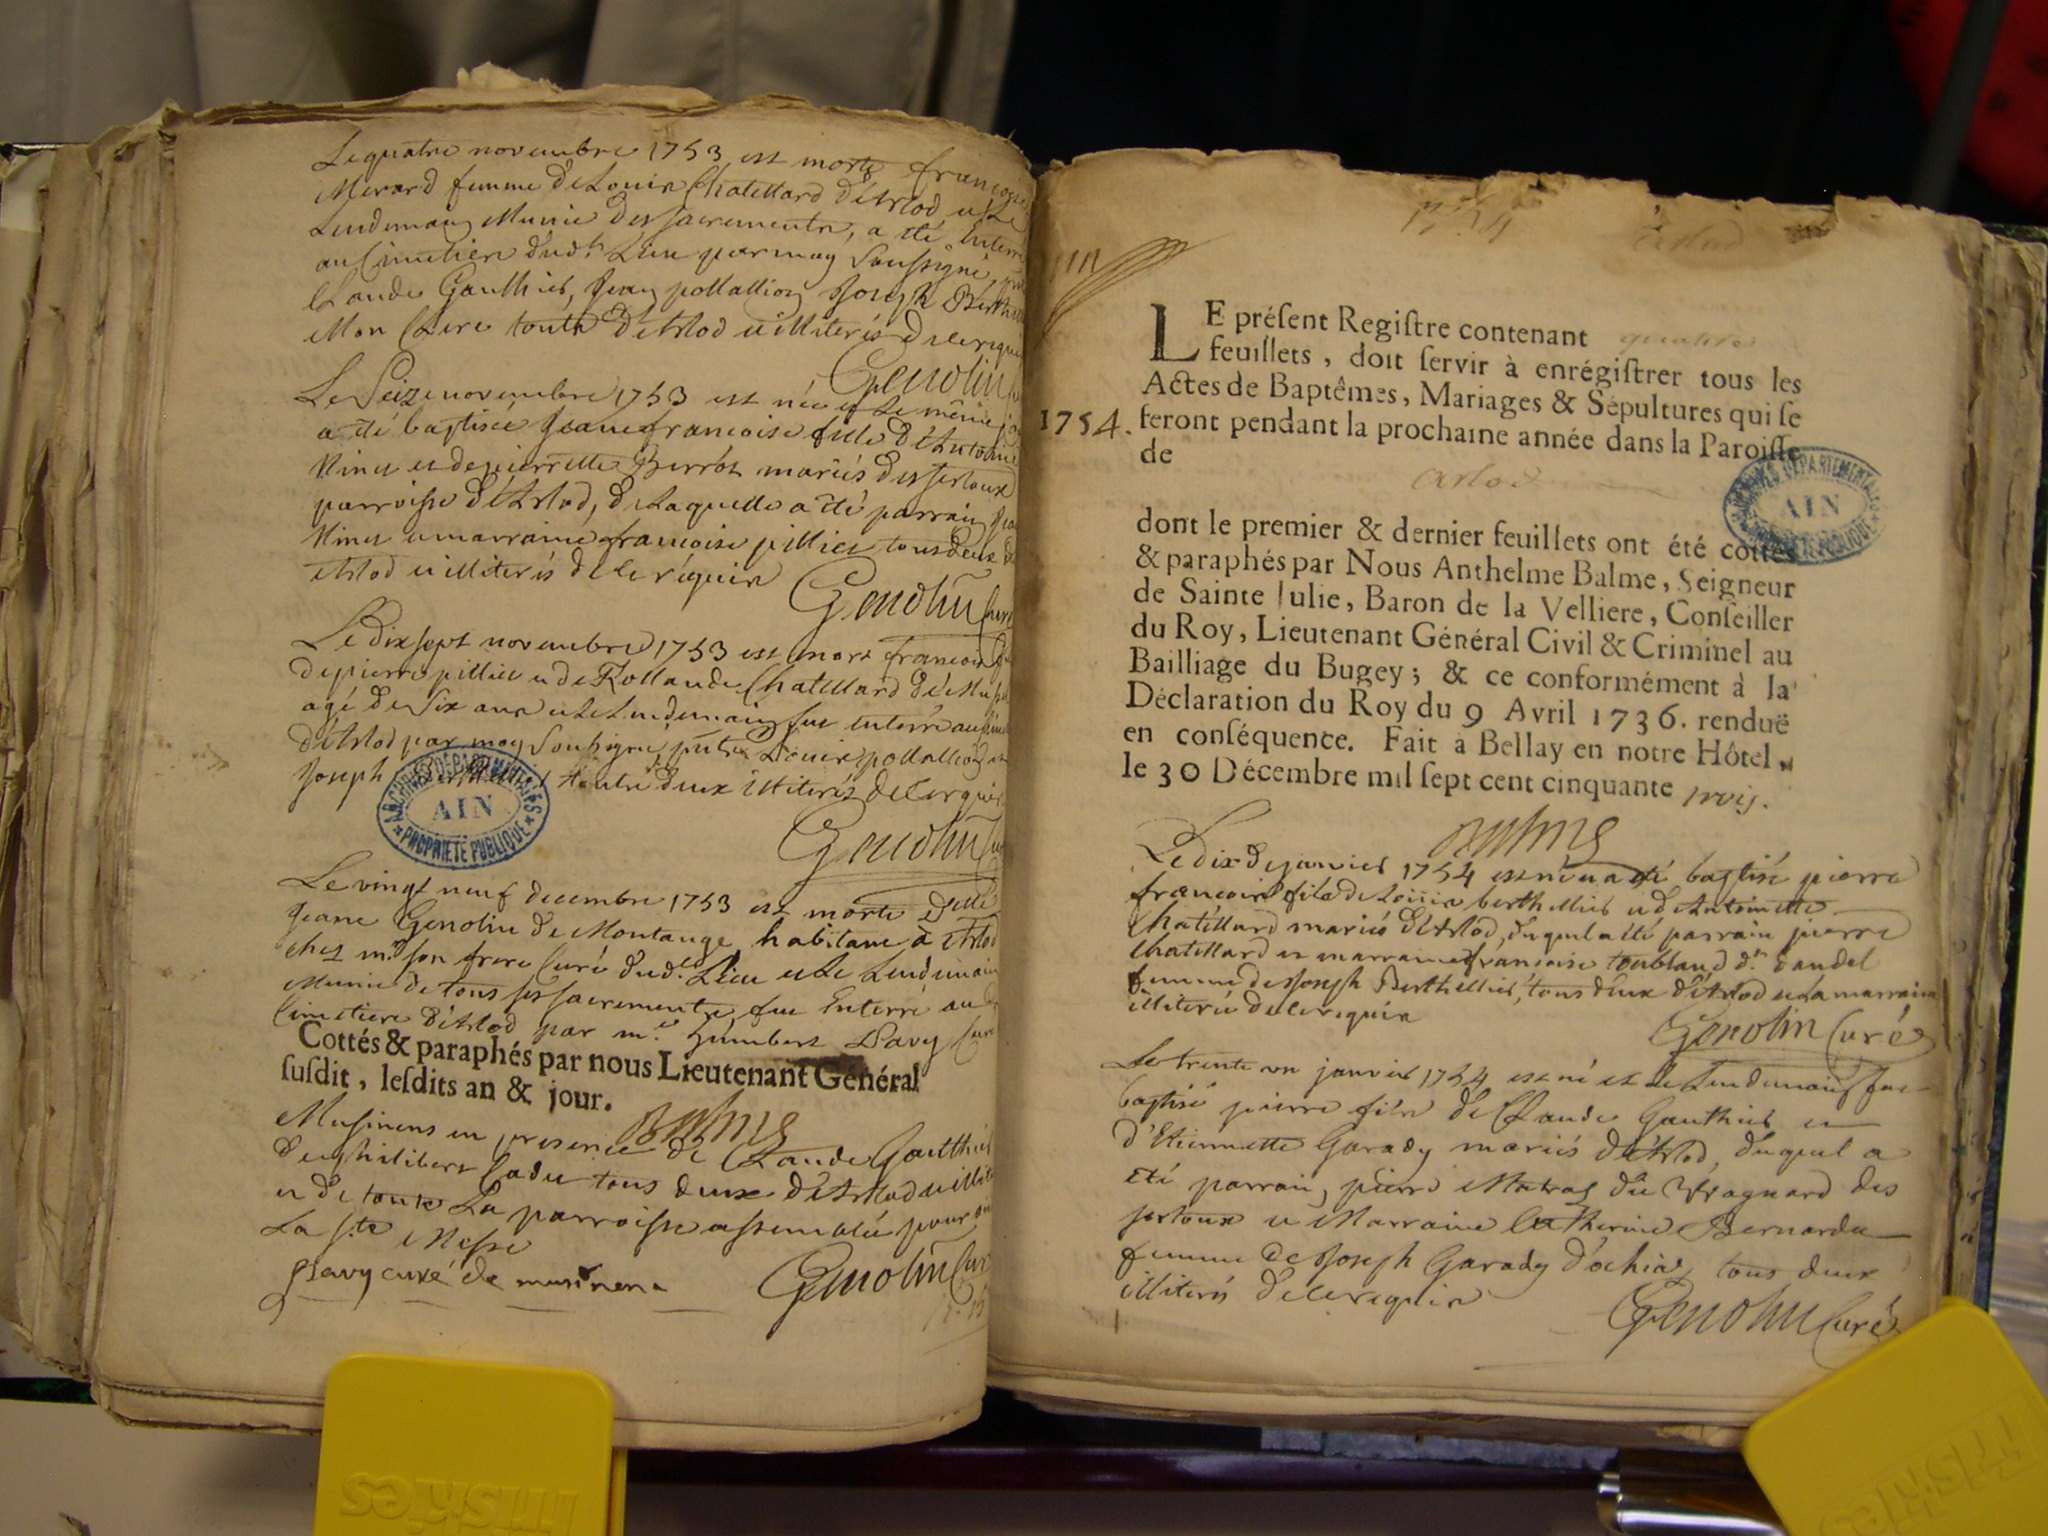 Le quatre novembre 1753 est morte francoise
Merard femme de Louis Chatellard d'Arlod et le
Lendemain Munie des sacrements, a été Enterré
au Cimetiere dud.t Lieu par moy Soussigné
Claude Gauthier, Jean pollallion Joseph Berth
Mon Clere touts d'Arlod illiterés de ce requis
Genolin
Le Seize novembre 1753 est née et le même jo
a été baptisée Jeane francoise fille d'Antoine
Vinet et de pierrette Berrot mariés des sertoux
parroisse d'Arlod, de Laquelle a été parrain Jea
Vinet et marraine francoise pillier tous deux de
Arlod illiterés de ce requis
Genolin Curé
Le dix sept novembre 1753 est mort francois
de pierre pillier et de Rollande Chatellard de
agé de Six ans et le Lendemain fut enterré au
d'Arlod par moy Soussigné Louis pollallion et
Joseph touts deux illiterés de ce requis
Genolin
Le vingt neuf decembre 1753 est morte Delle
Jeane Genolin de Montange habitant à Arlod
chez m.r son frere Curé dud. Lieu et le Lendemain
Munie de tous ses sacrements, fut Enterré au
Cimetiere d'Arlod par m.re Humbert Pavy Curé
Cottés & paraphés par nous Lieutenant Général
susdit, lesdits an & jour.
Balme
Musinens en presence de Claude Gautthier
de philibert Cadu tous deux d'Arlod
et de toute La parroisse assemblée pour
La s.te Messe
pavy curé de musinens
Genolin Curé
ARCHIVES DEPARTEMENTALES
AIN
PROPRIETE PUBLIQUE
1754 Arlod
LE présent Registre contenant quatre
feuillets, doit servir à enrégistrer tous les
Actes de Baptêmes, Mariages & Sépultures qui se
1754. feront pendant la prochaine année dans la Paroisse
de
Arlod
dont le premier & dernier feuillets ont été cottés
& paraphés par Nous Anthelme Balme, Seigneur
de Sainte Julie, Baron de la Velliere, Conseiller
du Roy, Lieutenant Général Civil & Criminel au
Bailliage du Bugey; & ce conformément à la
Déclaration du Roy du 9 Avril 1736. renduë
en conséquence. Fait à Bellay en notre Hôtel,
le 30 Décembre mil sept cent cinquante trois.
Balme
ARCHIVES DEPARTEMENTALES
AIN
Le dix de janvier 1754 est né et a été baptisé pierre
francois fils de Louis berthellier et de Antoinette
Chatellard mariés d'Arlod, duquel a été parrain pierre
Chatellard et marraine fransoise toubland
femme de Joseph Berthellier, tous deux d'Arlod et la marraine
illiterée de ce requis
Genolin Curé
Le trente un janvier 1754 est né et le Lendemain fut
baptisé pierre fils de Claude Gauthier et
d'Etiennette Garady mariés d'Arlod, duquel a
été parrain pierre Matras du Vragnard des
sertoux et Marraine Catherine Bernarde
femme de Joseph Garady d'ochiaz tous deux
illiterés de ce requis
Genolin Curé